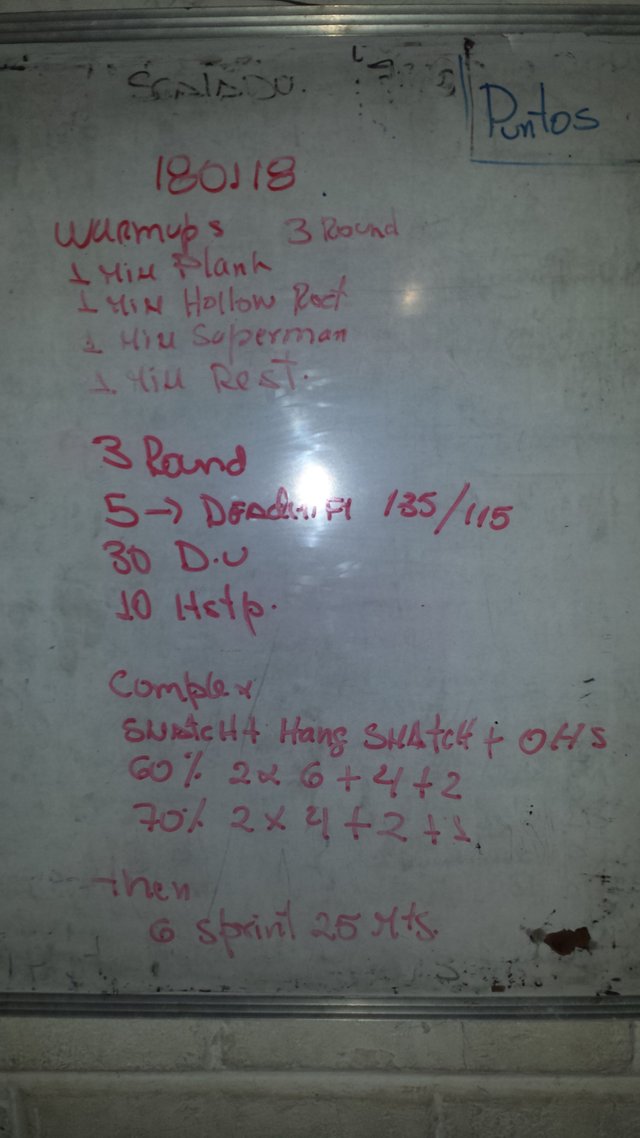 SCALADO.
Puntos
180118
Warmups 3 Round
1 Min Plank
1 Min Hollow Rock
1 Min Superman
1 Min Rest.
3 Round
5 → Deadlift 135/115
30 D.U
10 Hstp.
Complex
Snatch + Hang Snatch + OHS
60% 2x 6+4+2
70% 2x 4+2+1
then
6 Sprint 25 Mts.